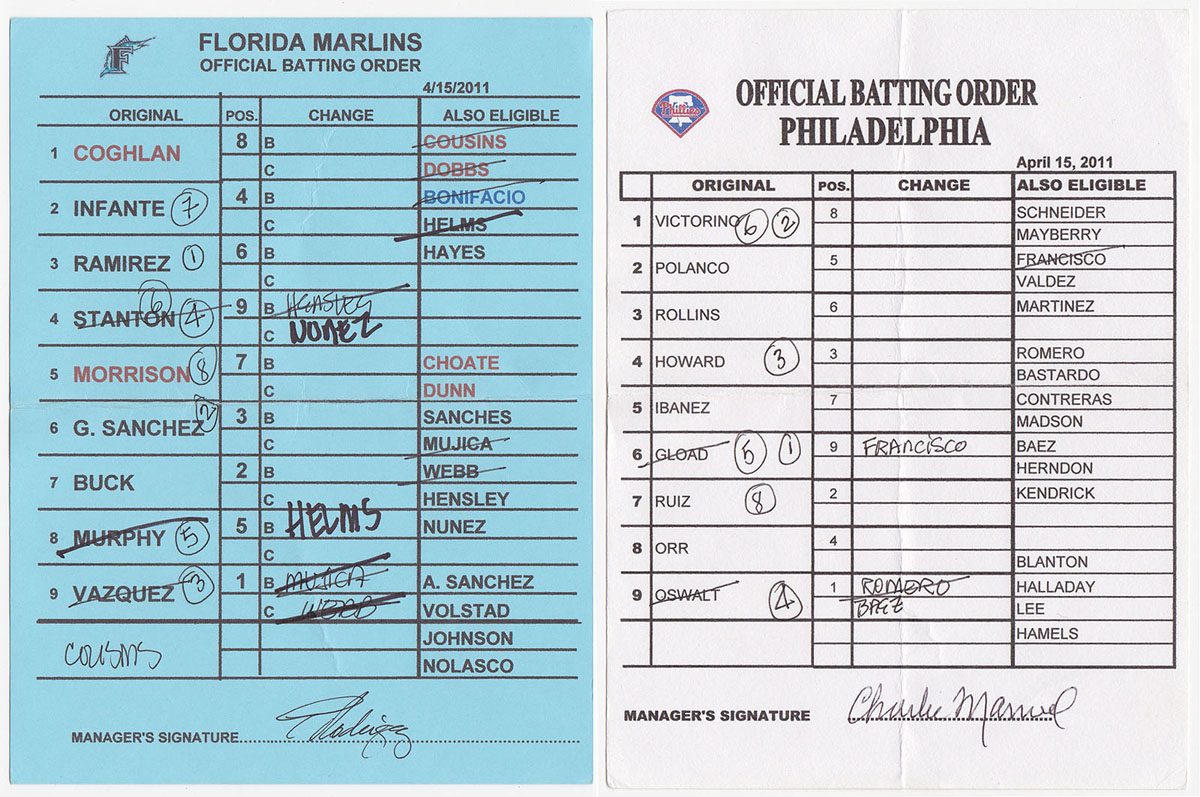 FLORIDA MARLINS
OFFICIAL BATTING ORDER
4/15/2011
ORIGINAL POS. CHANGE ALSO ELIGIBLE
1 COGHLAN 8 B COUSINS
C DOBBS
2 INFANTE 7 4 B BONIFACIO
C HELMS
3 RAMIREZ 1 6 B HAYES
C
4 STANTON 6 4 9 B HENSLEY
C NUNEZ
5 MORRISON 8 7 B CHOATE
C DUNN
6 G. SANCHEZ 2 3 B SANCHES
C MUJICA
7 BUCK 2 B WEBB
C HENSLEY
8 MURPHY 5 5 B HELMS NUNEZ
C
9 VAZQUEZ 3 1 B MUJICA A. SANCHEZ
C WEBB VOLSTAD
COUSINS JOHNSON
NOLASCO
MANAGER'S SIGNATURE
F
Phillies
OFFICIAL BATTING ORDER
PHILADELPHIA
April 15, 2011
ORIGINAL POS. CHANGE ALSO ELIGIBLE
1 VICTORINO 6 2 8 SCHNEIDER
MAYBERRY
2 POLANCO 5 FRANCISCO
VALDEZ
3 ROLLINS 6 MARTINEZ
4 HOWARD 3 3 ROMERO
BASTARDO
5 IBANEZ 7 CONTRERAS
MADSON
6 GLOAD 5 1 9 FRANCISCO BAEZ
HERNDON
7 RUIZ 8 2 KENDRICK
8 ORR 4
BLANTON
9 OSWALT 4 1 ROMERO HALLADAY
BAEZ LEE
HAMELS
MANAGER'S SIGNATURE Charlie Manuel